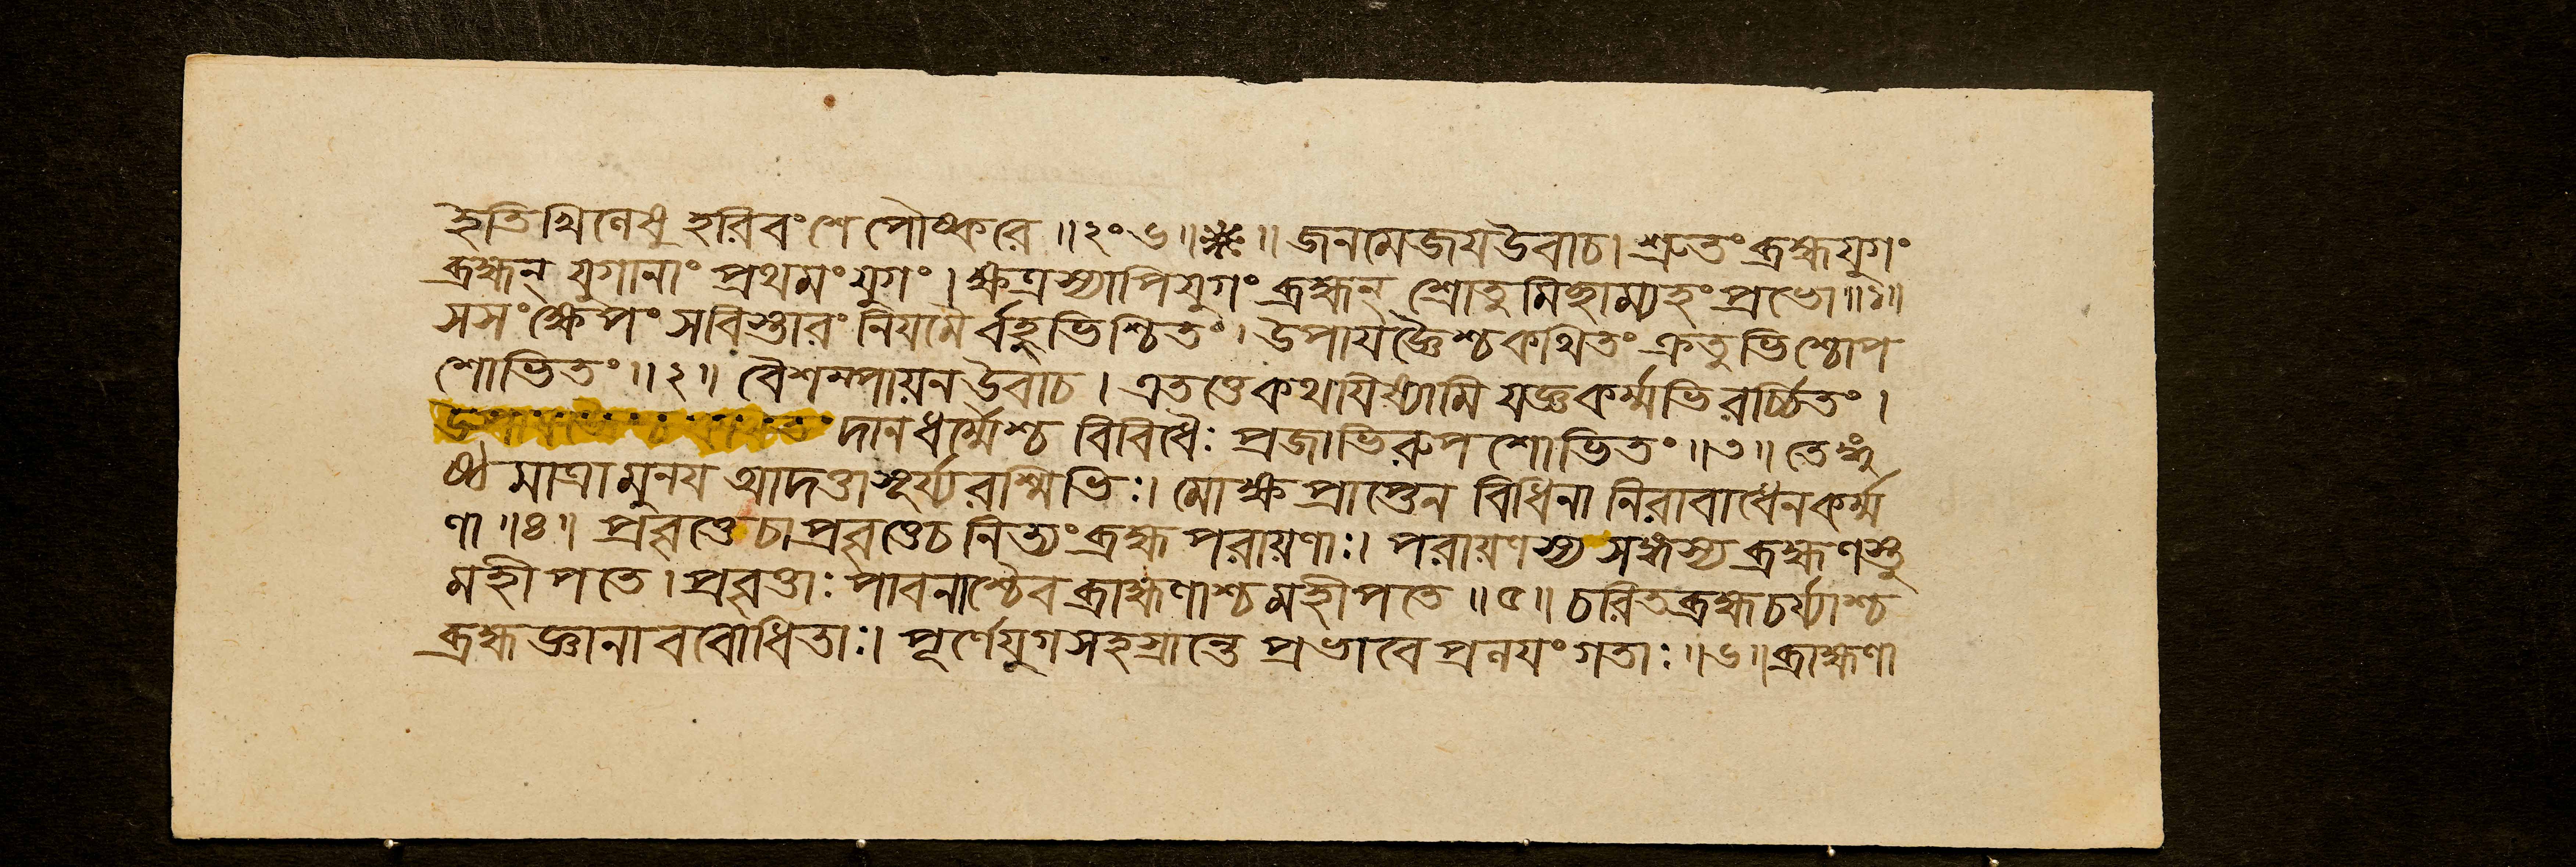 ইতি খিলেষু হরিবংশে পৌষ্করে ॥২০৬॥❋॥ জনমেজয উবাচ। শ্রুতং ব্রহ্মযুগং
ব্রহ্মন্ যুগানাং প্রথমং যুগং। ক্ষত্রস্যাপিযুগং ব্রহ্মন্ শ্রোতুমিচ্ছাম্যহং প্রভো॥১॥
সসংক্ষেপং সবিস্তারং নিয়মৈর্বহুভিশ্চিতং। উপাযজ্ঞৈশ্চকথিতং ক্রতুভিশ্চোপ
শোভিতং॥২॥ বৈশম্পায়ন উবাচ। এতত্তেকথাযিষ্যামি যজ্ঞকর্ম্মভিরর্চ্চিতং।
দানধর্ম্মৈশ্চ বিবিধৈঃ প্রজাভিরুপশোভিতং॥৩॥ তেঙ্গু
ষ্ঠমাত্রামুনয আদত্তাসূর্য্যরশ্মিভিঃ। মোক্ষপ্রাপ্তেন বিধিনা নিরাবাধেনকর্ম্ম
ণা॥৪॥ প্রবৃত্তেচাপ্রবৃত্তেচ নিত্যংব্রহ্মপরায়ণাঃ। পরায়ণস্য ব্রহ্মণস্তু
মহীপতে। প্রবৃত্তাঃ পাবনাশ্চৈব ব্রাহ্মণাশ্চ মহীপতে॥৫॥ চরিতব্রহ্মচর্য্যাশ্চ
ব্রহ্মজ্ঞানাববোধিতাঃ। পূর্ণেযুগসহস্রান্তে প্রভাবে প্রলযংগতাঃ॥৬॥ব্রাহ্মণা